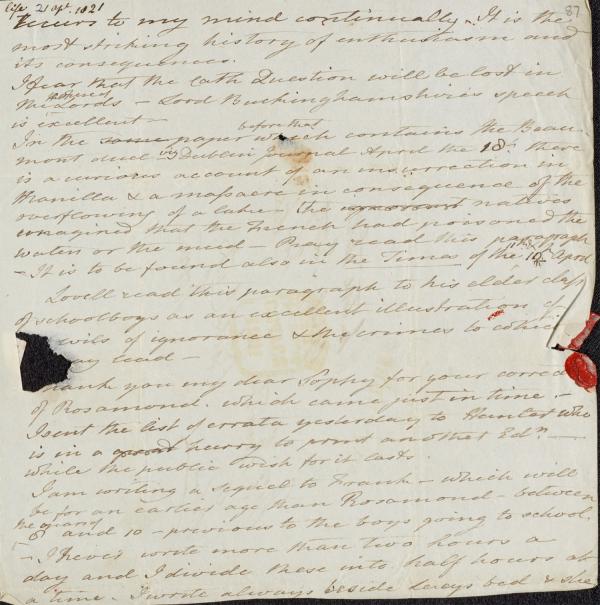 life 21 apl. 1821
87
recurs to my mind continually. It is the
most striking history of enthusiasm and
its consequences.
I fear that the Cath Question will be lost in
the Lords – Lord Buckinghamshire's speech
is excellent –
In the some paper before that which contains the Beau-
mont duel in Dublin Journal April the 18th there
is a curious account of an insurrection in
Manilla & a massacre in consequence of the
overflowing of a lake – The ignorant natives
imagined that the French had poisoned the
water or the mud – Pray read this paragraph
– It is to be found also in the Times of the 10th April
Lovell read this paragraph to his elder class
of schoolboys as an excellent illustration of
evils of ignorance & the crimes to which
may lead –
hank you my dear Sophy for your correc
of Rosamond. which came just in time –
I sent the list of errata yesterday to Hunter who
is in a great hurry to print another Edn. –
while the public wish for it lasts.
I am writing a sequel to Frank – which will
be for an earlier age than Rosamond – between
the years of 8 and 10 – previous to the boys going to school.
– I never write more than two hours a
day and I divide these into half hours at
a time. I wrote always beside Lucys bed & she